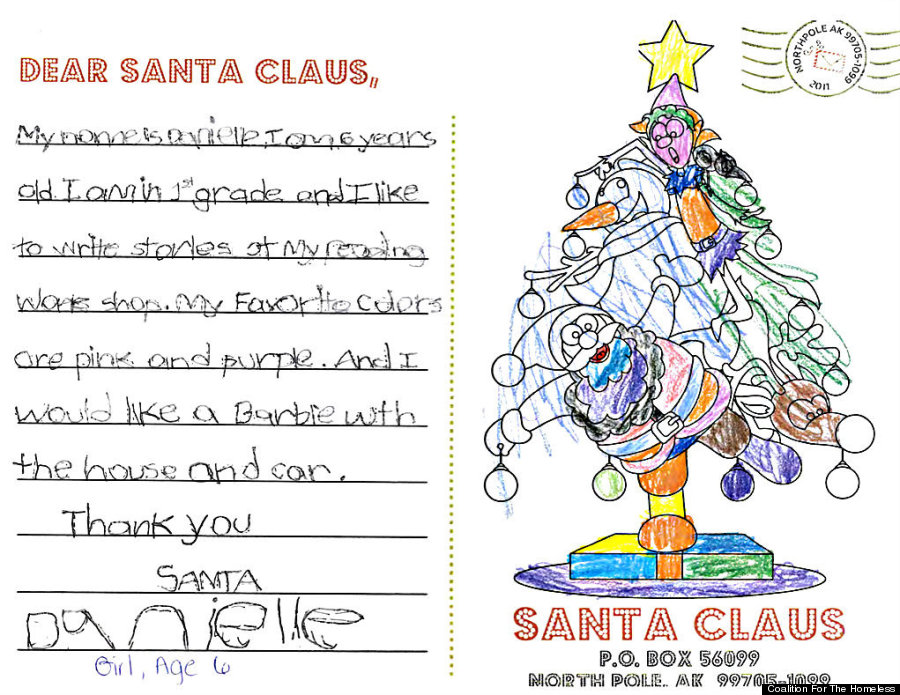 DEAR SANTA CLAUS,,
My name is Danielle, I am 6 years
old. I am in 1st grade and I like
to write stories at My reading
work shop. My Favorite Colors
are pink and purple. And I
would like a Barbie with
the house and car.
Thank you
SANTA
Danielle
Girl, Age 6
NORTHPOLE AK 99705-1099
2011
SANTA CLAUS
P.O. BOX 56099
NORTH POLE, AK 99705-1099
Coalition For The Homeless